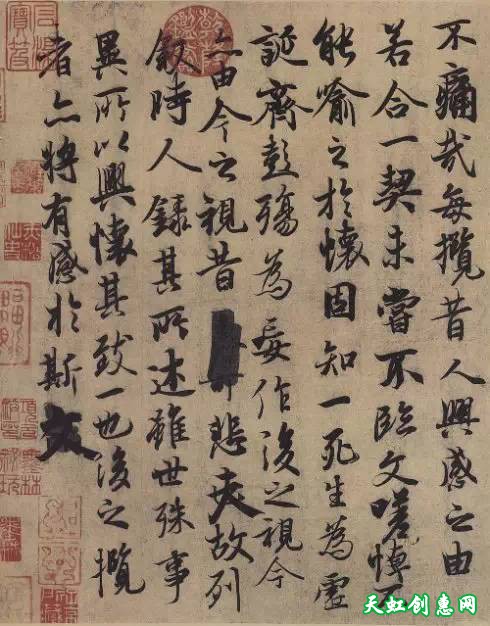 不痛哉每攬昔人興感之由
若合一契未嘗不臨文嗟悼不
能喻之於懷固知一死生為虛
誕齊彭殤為妄作後之視今
亦由今之視昔悲夫故列
叙時人錄其所述雖世殊事
異所以興懷其致一也後之攬
者亦將有感於斯文
天虹创惠网